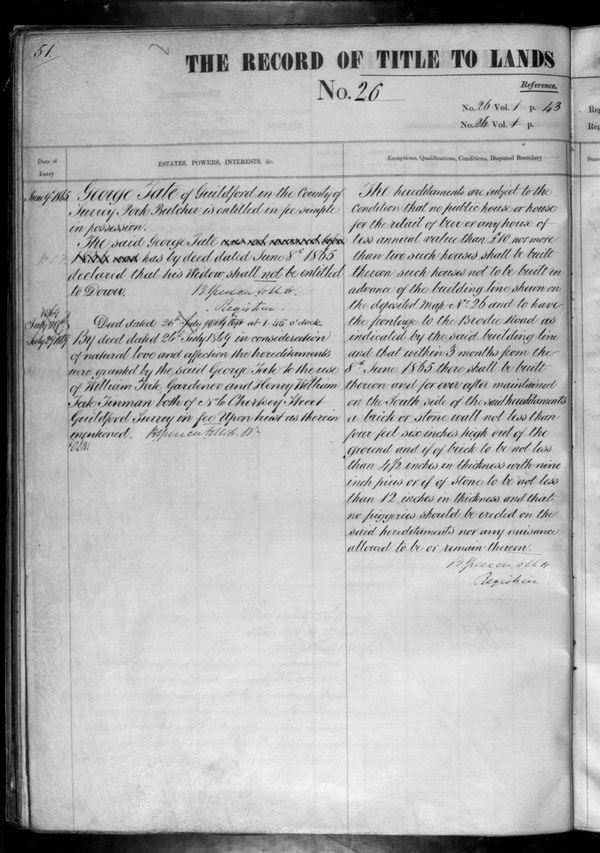 51.
THE RECORD OF TITLE TO LANDS
No. 26
Reference.
No. 26 Vol. 1 p. 43
No. 26 Vol. 1 p.
Date of
Entry
ESTATES, POWERS, INTERESTS, &c.
Exceptions, Qualifications, Conditions, Disputed Boundary
June 9th 1865
George Tate of Guildford in the County of
Surrey Pork Butcher is entitled in fee simple
in possession.
The said George Tate
has by deed dated June 8th 1865
declared that his Widow shall not be entitled
to Dower.
Registrar.
1869
Deed dated 26th July 1869 at 1.45 o'clock
July 29 1869
By deed dated 26th July 1869 in consideration
of natural love and affection the hereditaments
were granted by the said George Tate to the use
of William Tate Gardener and Henry William
Tate Tinman both of No. 6 Chertsey Street
Guildford Surrey in fee Upon trust as therein
mentioned.
The hereditaments are subject to the
Condition that no public house or house
for the retail of beer or any house of
less annual value than £10 nor more
than two such houses shall be built
thereon such houses not to be built in
advance of the building line shown on
the deposited Map No. 26 and to have
the frontage to the Brodie Road as
indicated by the said building line
and that within 3 months from the
8th June 1865 there shall be built
thereon and for ever after maintained
on the South side of the said hereditaments
a brick or stone wall not less than
four feet six inches high out of the
ground and if of brick to be not less
than 4½ inches in thickness with nine
inch piers or if of stone to be not less
than 12 inches in thickness and that
no piggeries should be erected on the
said hereditaments nor any nuisance
allowed to be or remain thereon.
Registrar.